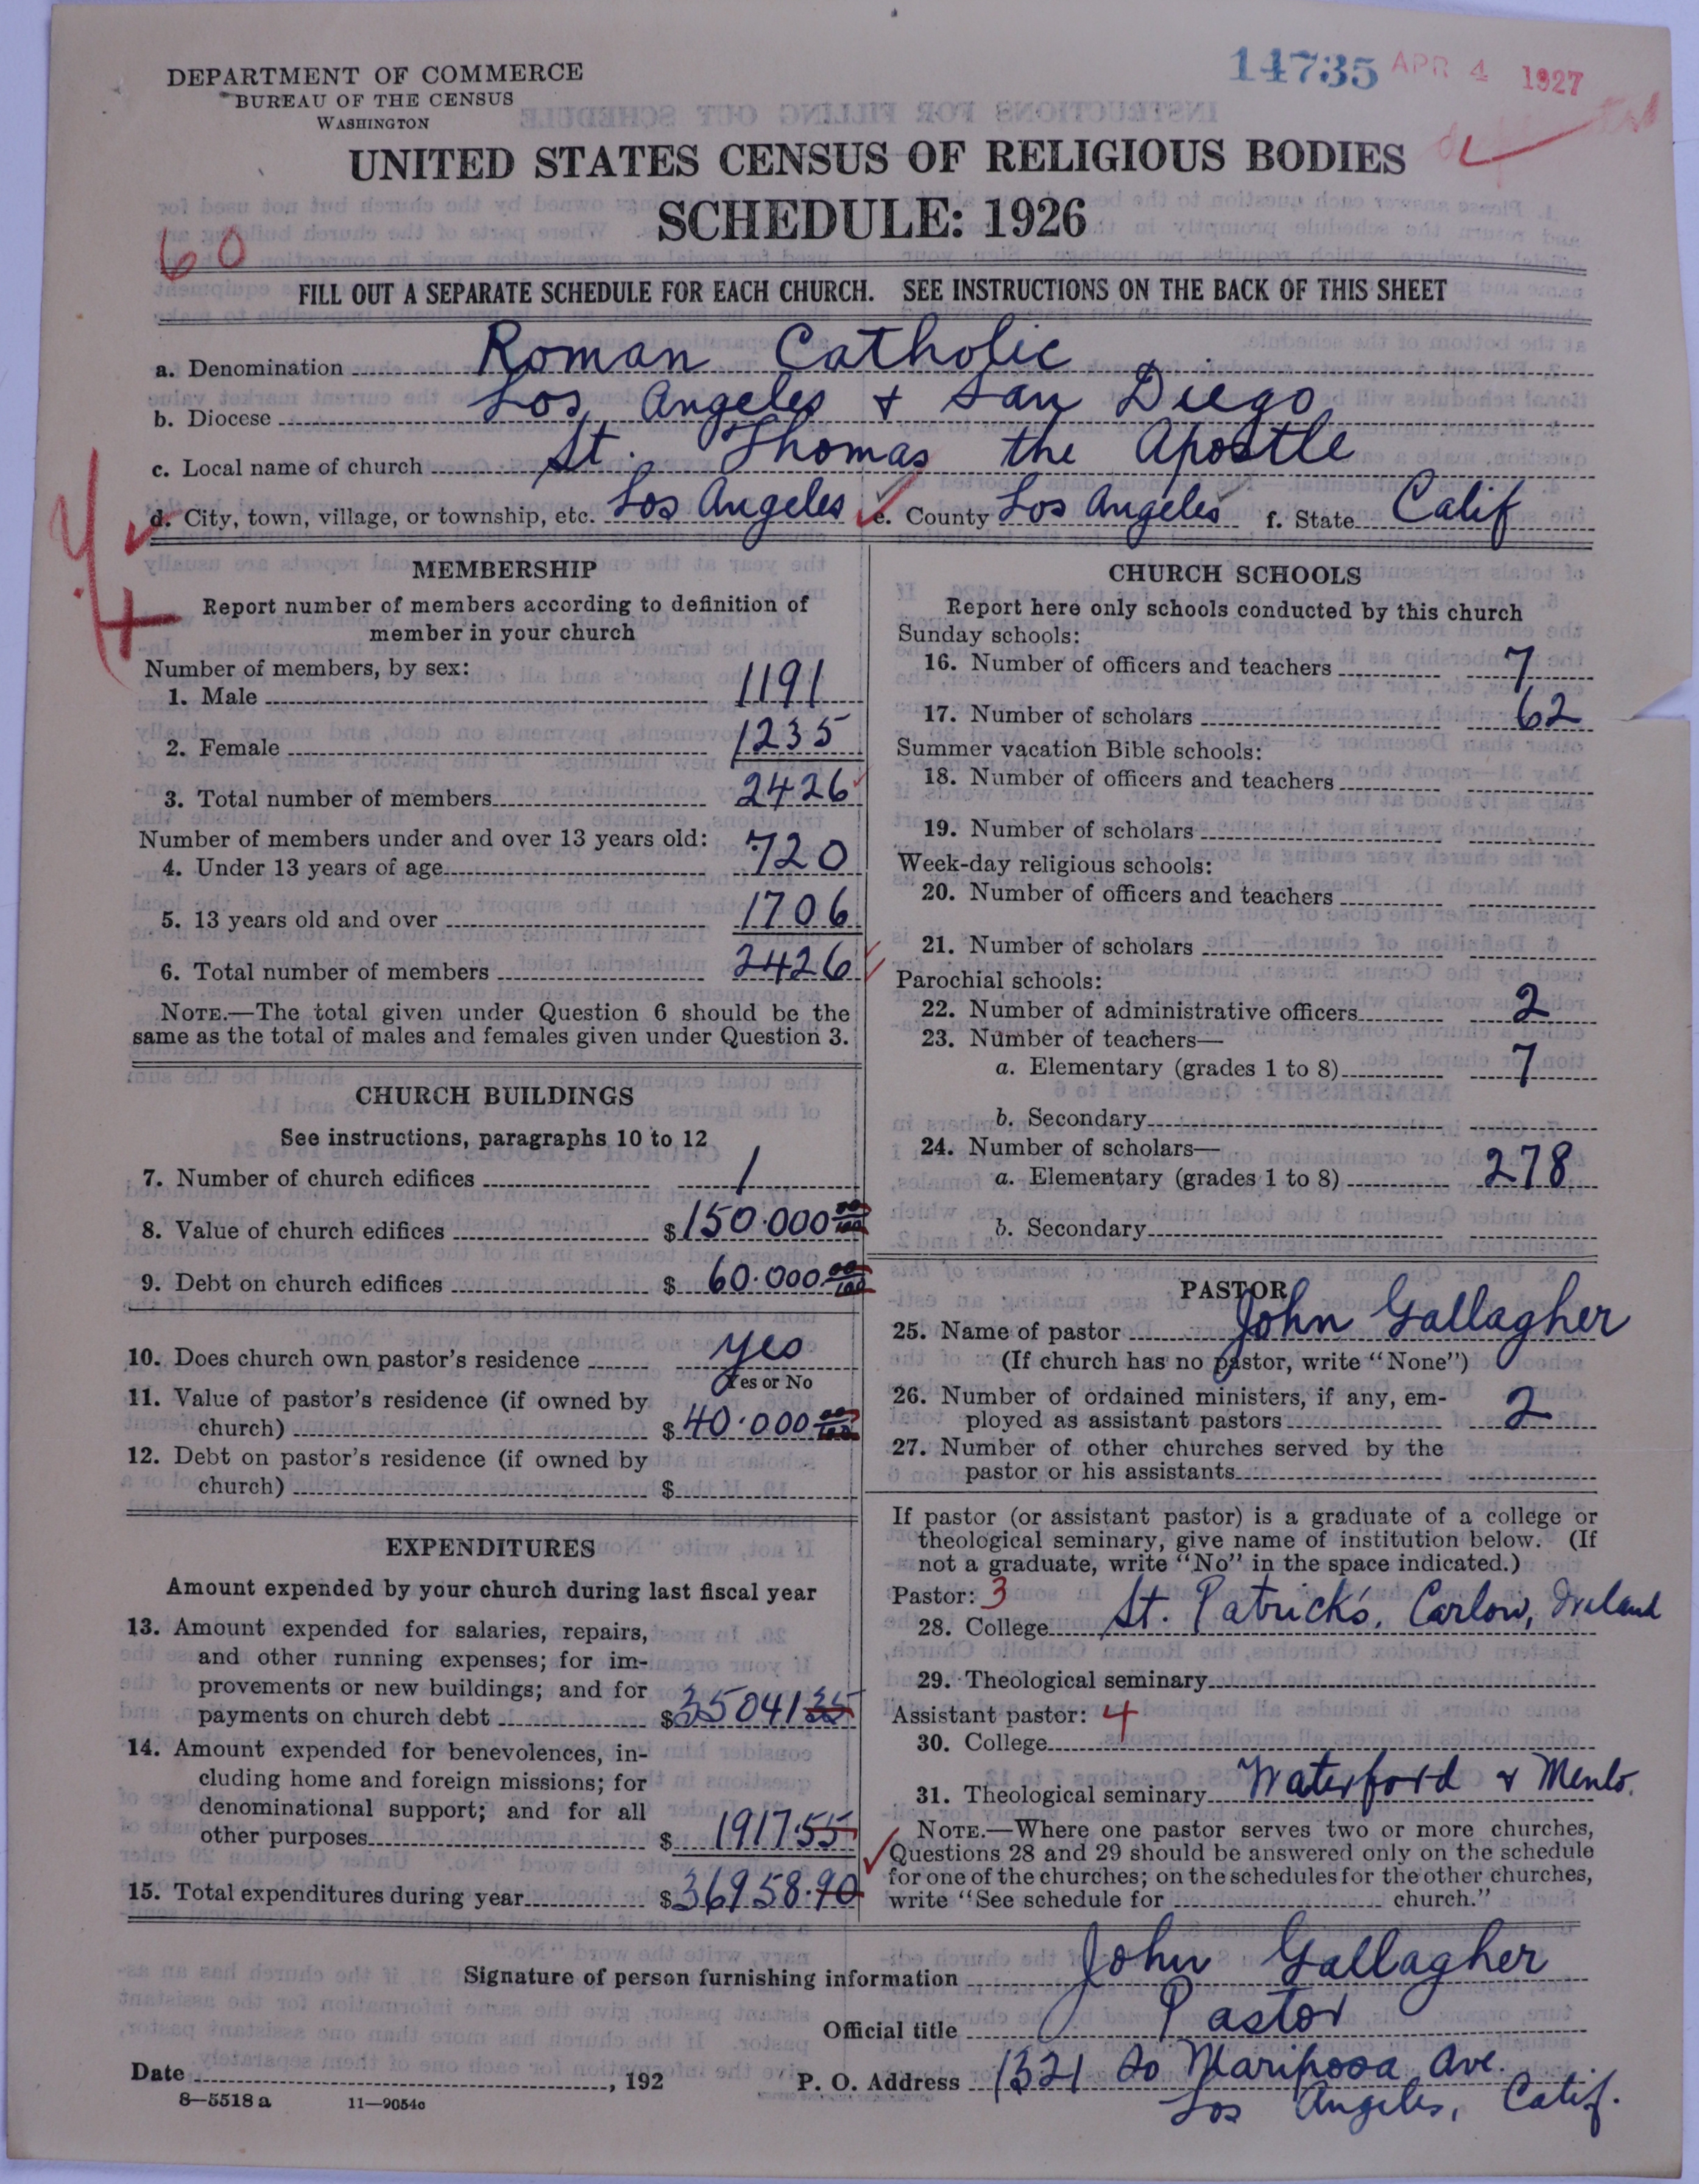 14735 APR 4 1927
DEPARTMENT OF COMMERCE
BUREAU OF THE CENSUS
WASHINGTON
UNITED STATES CENSUS OF RELIGIOUS BODIES
SCHEDULE: 1926
60
FILL OUT A SEPARATE SCHEDULE FOR EACH CHURCH. SEE INSTRUCTIONS ON THE BACK OF THIS SHEET
a. Denomination Roman Catholic
b. Diocese Los Angeles & San Diego
c. Local name of church St. Thomas the Apostle
d. City, town, village, or township, etc. Los Angeles e. County Los Angeles f. State Calif
MEMBERSHIP
Report number of members according to definition of
member in your church
Number of members, by sex:
1. Male 1191
2. Female 1235
3. Total number of members 2426
Number of members under and over 13 years old:
4. Under 13 years of age 720
5. 13 years old and over 1706
6. Total number of members 2426
NOTE.—The total given under Question 6 should be the
same as the total of males and females given under Question 3.
CHURCH BUILDINGS
See instructions, paragraphs 10 to 12
7. Number of church edifices 1
8. Value of church edifices $150.000 00/100
9. Debt on church edifices $ 60.000 00/100
10. Does church own pastor's residence yes
Yes or No
11. Value of pastor's residence (if owned by
church) $40.000 00/100
12. Debt on pastor's residence (if owned by
church) $
EXPENDITURES
Amount expended by your church during last fiscal year
13. Amount expended for salaries, repairs,
and other running expenses; for im-
provements or new buildings; and for
payments on church debt $35041 35
14. Amount expended for benevolences, in-
cluding home and foreign missions; for
denominational support; and for all
other purposes $ 1917.55
15. Total expenditures during year $36958.90
CHURCH SCHOOLS
Report here only schools conducted by this church
Sunday schools:
16. Number of officers and teachers 7
17. Number of scholars 62
Summer vacation Bible schools:
18. Number of officers and teachers
19. Number of scholars
Week-day religious schools:
20. Number of officers and teachers
21. Number of scholars
Parochial schools:
22. Number of administrative officers 2
23. Number of teachers—
a. Elementary (grades 1 to 8) 7
b. Secondary
24. Number of scholars—
a. Elementary (grades 1 to 8) 278
b. Secondary
PASTOR
25. Name of pastor John Gallagher
(If church has no pastor, write "None")
26. Number of ordained ministers, if any, em-
ployed as assistant pastors 2
27. Number of other churches served by the
pastor or his assistants
If pastor (or assistant pastor) is a graduate of a college or
theological seminary, give name of institution below. (If
not a graduate, write "No" in the space indicated.)
Pastor: 3
28. College St. Patrick's, Carlow, Ireland
29. Theological seminary
Assistant pastor: 4
30. College
31. Theological seminary Waterford & Menlo.
NOTE.—Where one pastor serves two or more churches,
Questions 28 and 29 should be answered only on the schedule
for one of the churches; on the schedules for the other churches,
write "See schedule for church."
Signature of person furnishing information John Gallagher
Official title Pastor
Date , 192 P. O. Address 1321 So Mariposa Ave.
Los Angeles, Calif.
8—5518 a 11—9054c